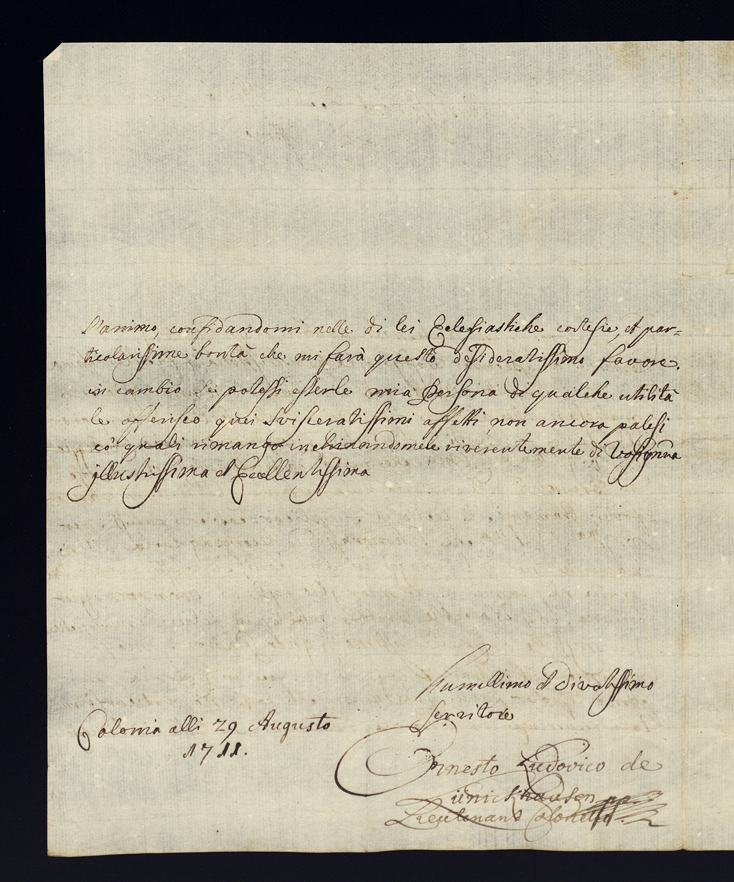 l'animo, confidandomi nelle di lei Eclesiastiche cortesie, et par=
ticolarissime bontà che mi farà questo desideratissimo favore.
in cambio se potessi esserle mia Persona di qualche utilità
le offerisco quei svisceratissimi affetti non ancora palesi
co' quali rimango inchinandomele riverentemente di
illustrissima et Eccellentissima
Humillimo et divotissimo
Servitore
Colonia alli 29 Augusto
1711.
Ernesto Ludovico de
Lieutenant Colonello